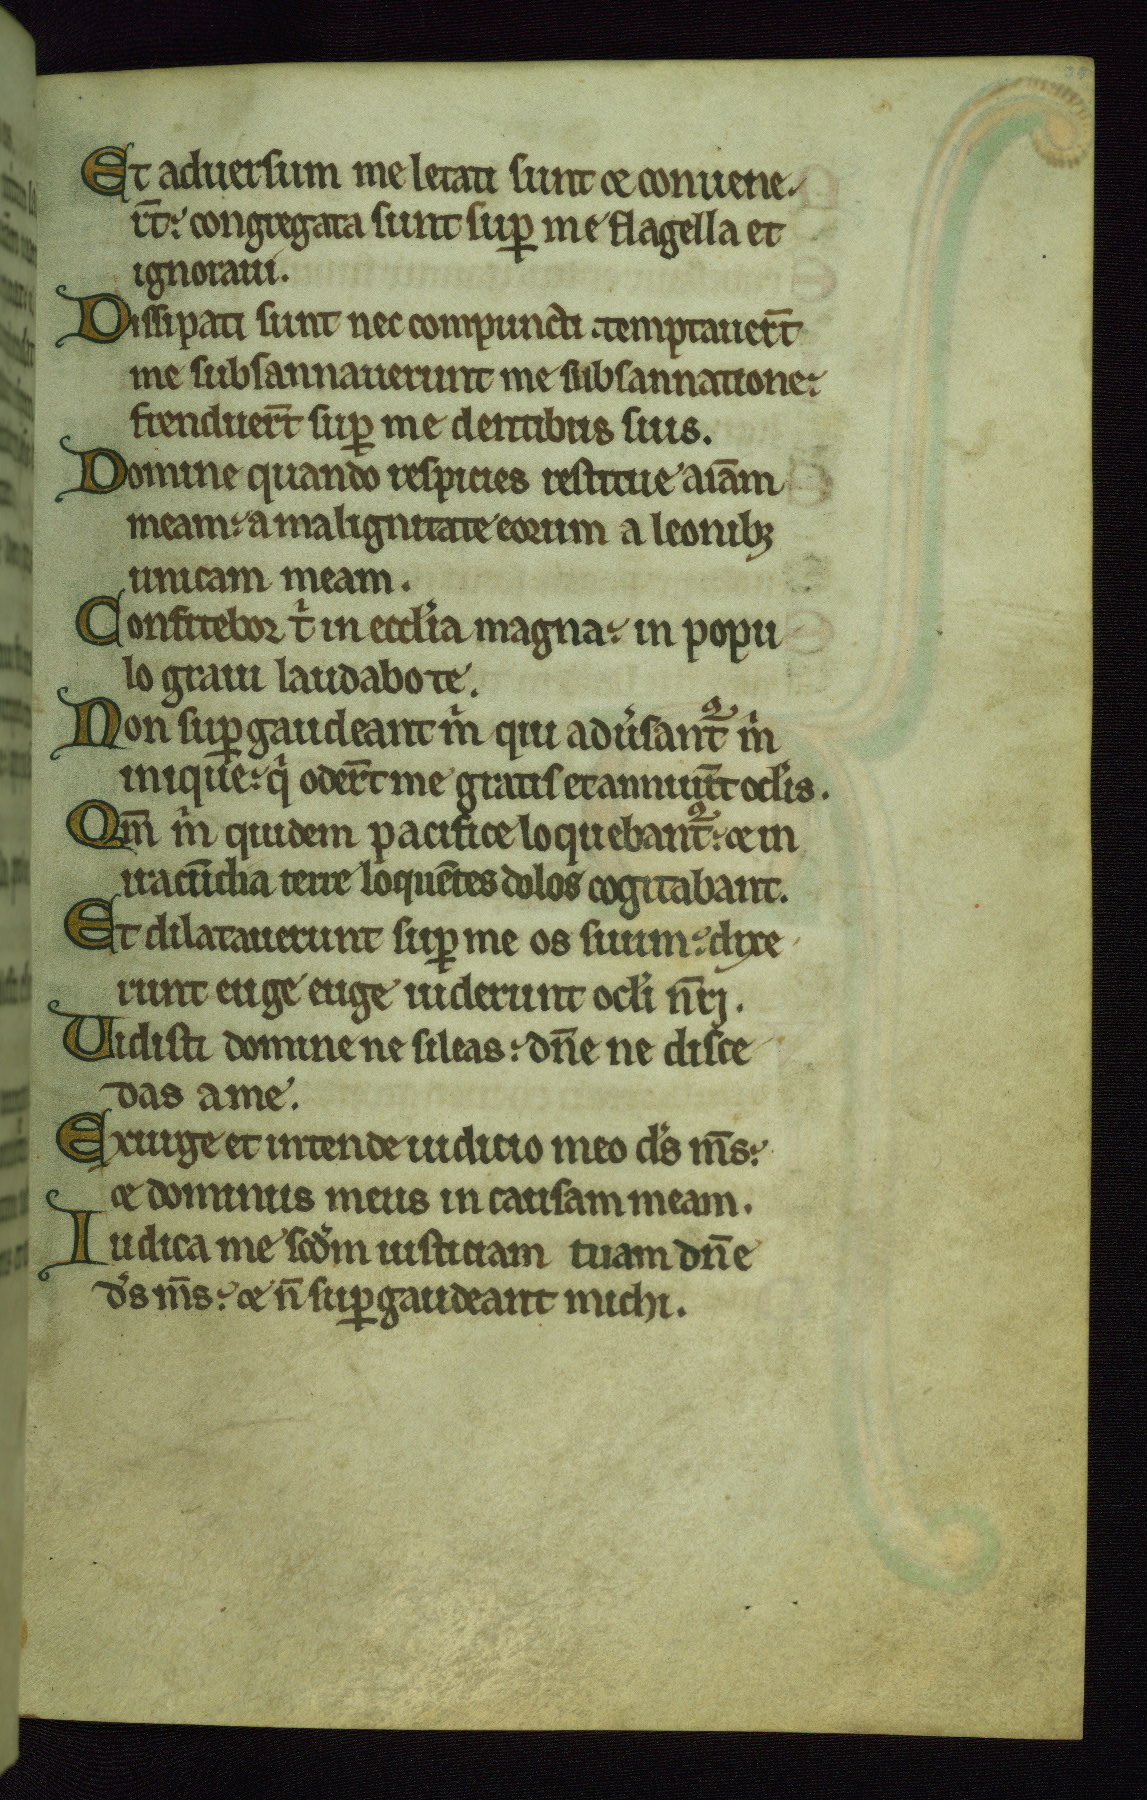 Et aduersum me letati sunt ⁊ conuene
rt̄: congregata sunt suꝑ me flagella et
ignoraui.
Dissipati sunt nec compuncti. temptauer̄t
me subsannauerunt me subsannatione:
frenduer̄t suꝑ me dentibus suis.
Domine quando respicies restitue aīam
meam: a malignitate eorum a leonibꝫ
unicam meam.
Confitebor t̍ in eccl̍ia magna: in popu
lo graui laudabo te.
Non suꝑgaudeant m̍ qui adu̍sant᷑ m̍
inique: q̍ oder̄t me gratis et annuūt ocl̍is.
Qm̄ m̍ quidem pacifice loquebant᷑: ⁊ in
iracūdia terre loquētes dolos cogitabant.
Et dilatauerunt suꝑ me os suum: dixe
runt euge euge uiderunt ocl̍i nr̄j.
Uidisti domine ne sileas: dn̄e ne disce
das a me.
Exurge et intende iudicio meo ds̄ ms̄:
⁊ dominus meus in causam meam.
Iudica me scd̍m iusticiam tuam dn̄e
ds̄ ms̄: ⁊ n̄ suꝑgaudeant michi.